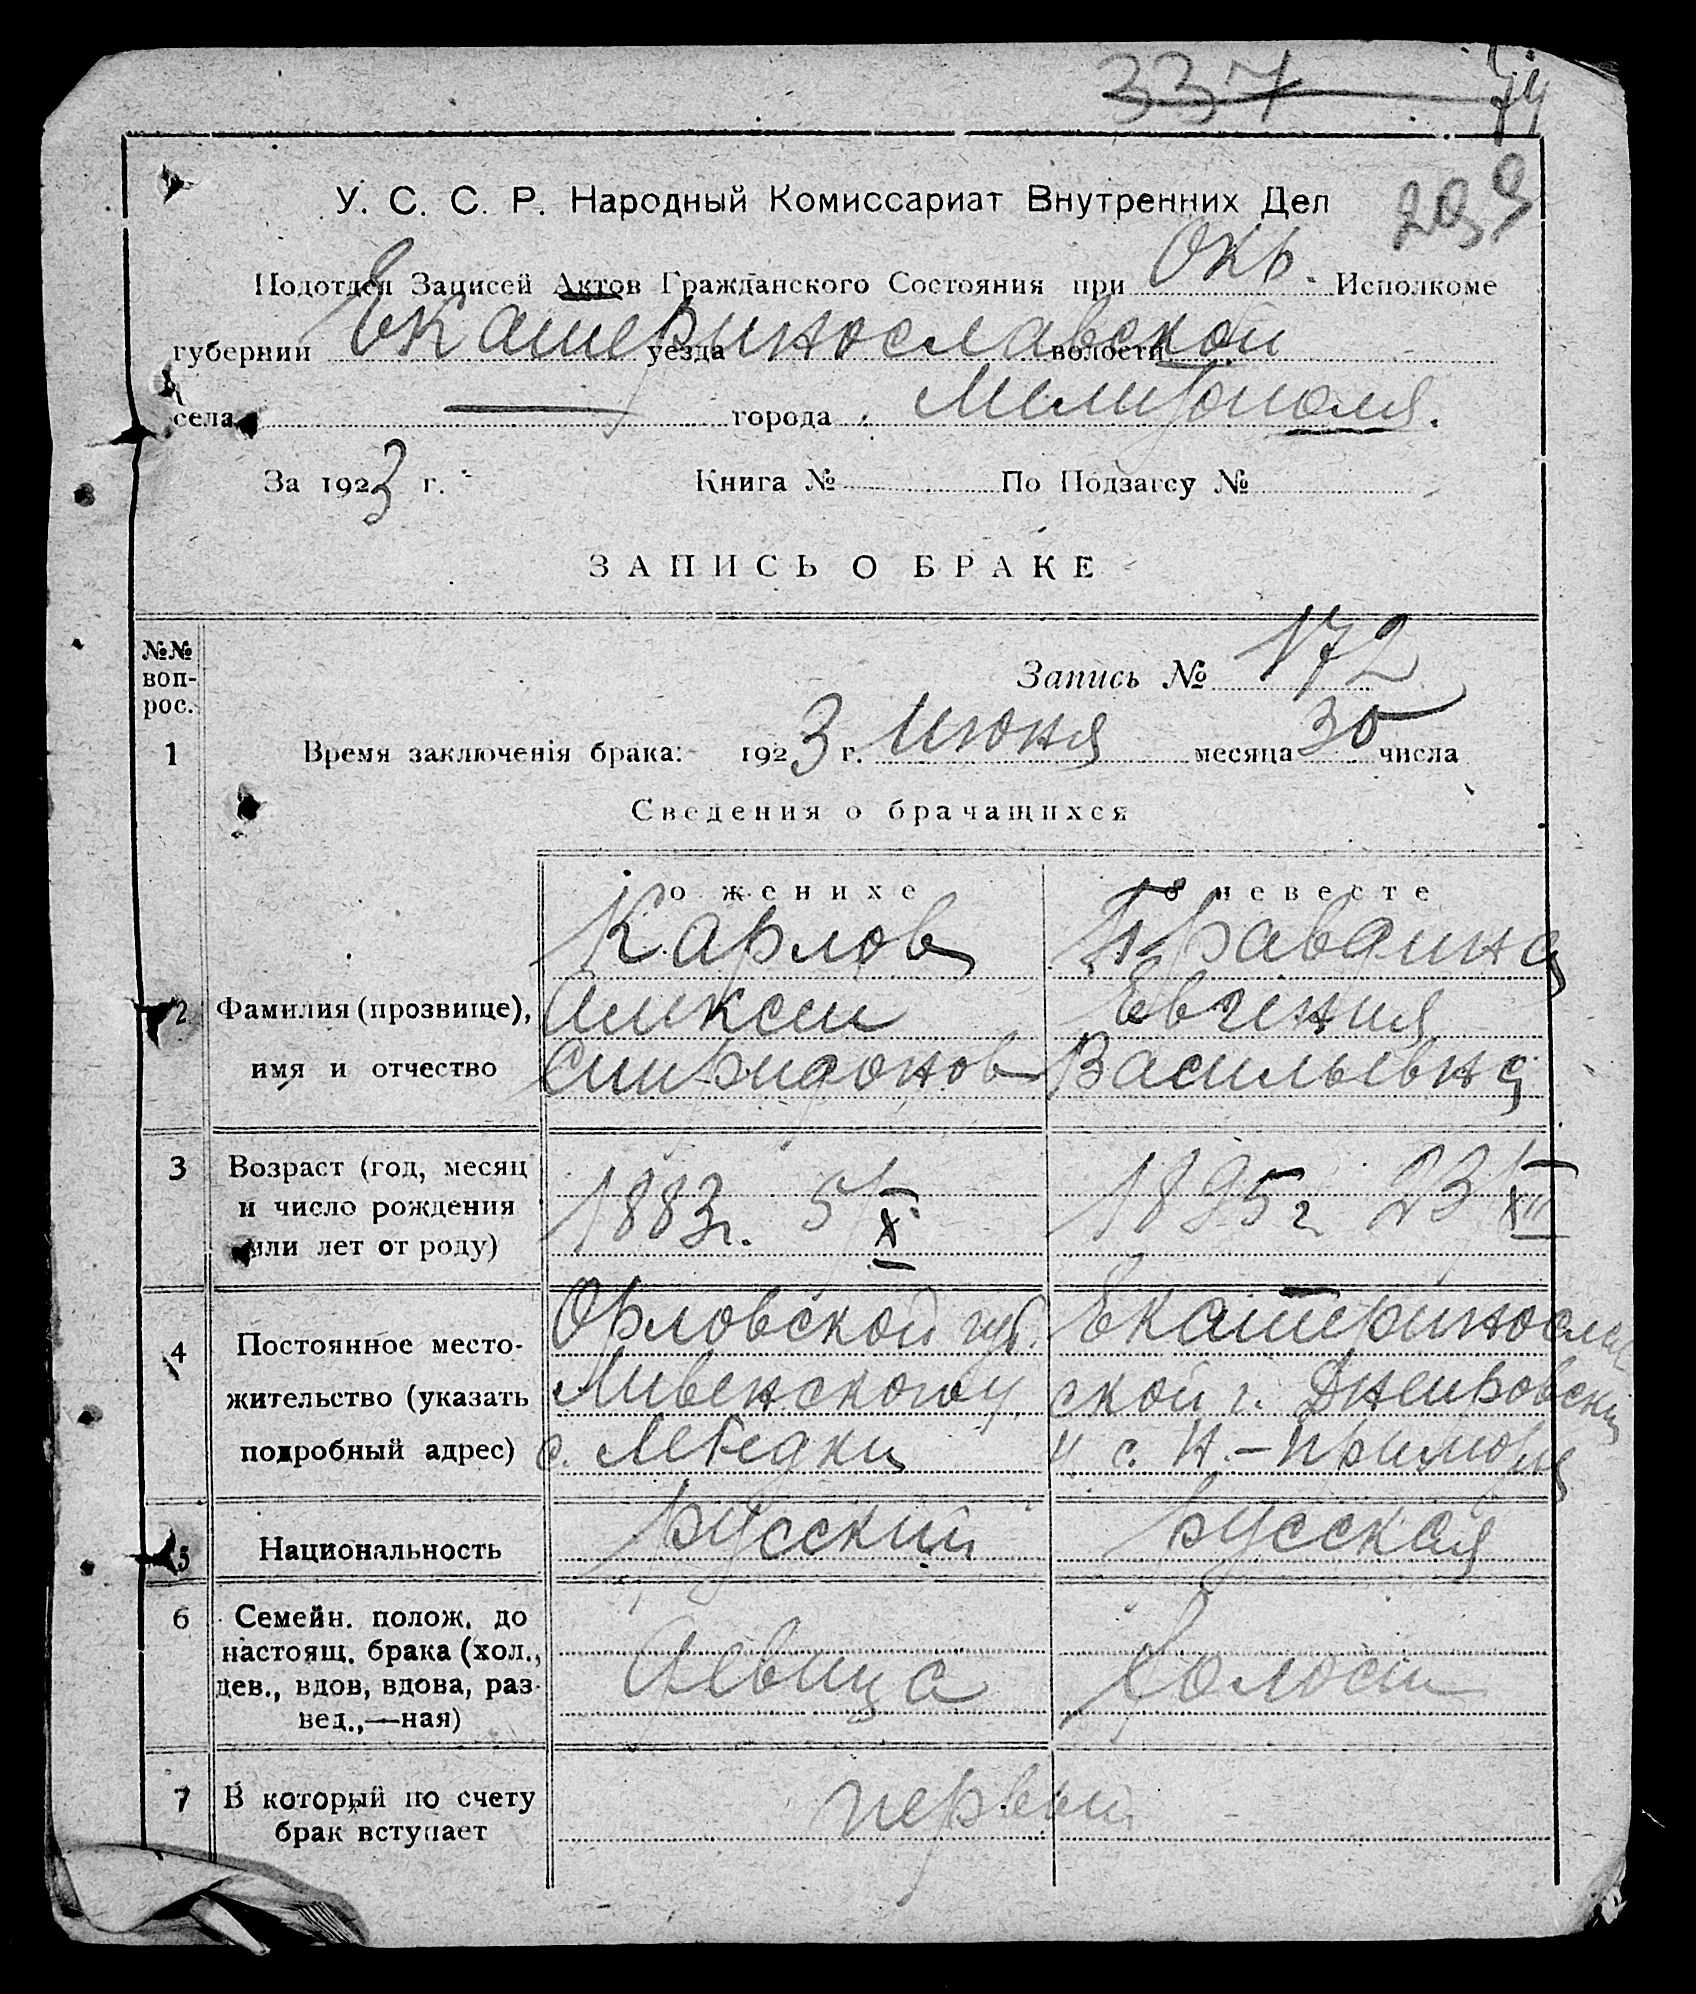 337 74
299
У. С. С. Р. Народный Комиссариат Внутренних Дел
Подотдел Записей Актов Гражданского Состояния при Окр. Исполкоме
губернии Екатеринославской уезда волости
села — города Мелитополя.
За 1923 г. Книга № По Подзагсу №
ЗАПИСЬ О БРАКЕ
№№ воп-рос.
Запись № 172
1 Время заключенія брака: 1923 г. Июня месяца 30 числа
Сведения о брачащихся
о женихе о невесте
Карлов
2 Фамилия (прозвище), Алексей Евгения
имя и отчество Спиридонов Васильевна
3 Возраст (год, месяц
и число рождения 1883г. 5/X 1895г 23/XII
или лет от роду)
Орловской губ. Екатеринослав
4 Постоянное место-
жительство (указать Ливенского у. ской г. Днепровский
подробный адрес) с. Лебедки у с. Н.-
5 Национальность русский русская
6 Семейн. полож. до
настоящ. брака (хол.,
дев., вдов, вдова, раз- девица холост
вед.,—ная)
7 В который по счету первый
брак вступает